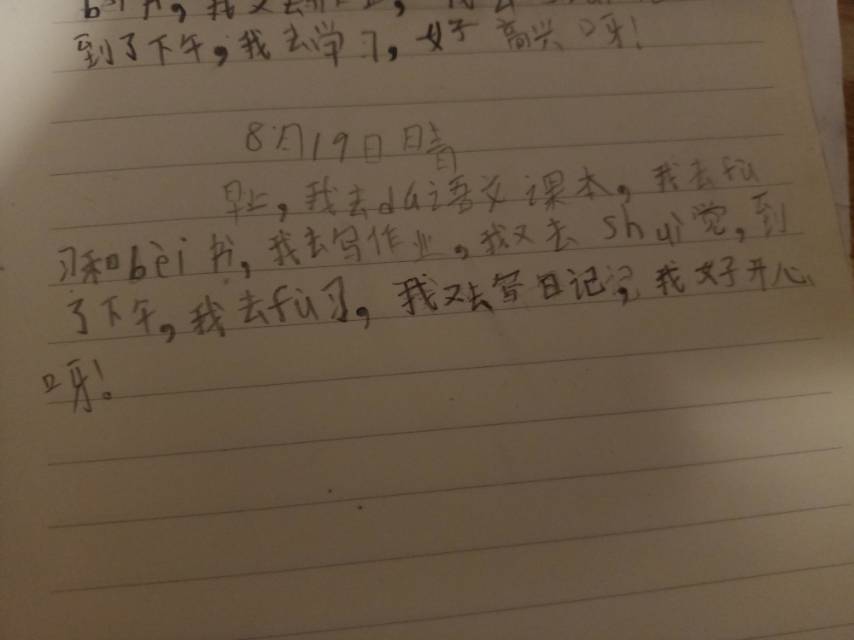 bèi书，我又去
到了下午，我去学习，好高兴呀！
8月19日 晴
早上，我去dú语文课本，我去fù
习和bèi书，我去写作业，我又去shuì觉，到
了下午，我去fù习，我又去写日记，我好开心
呀！